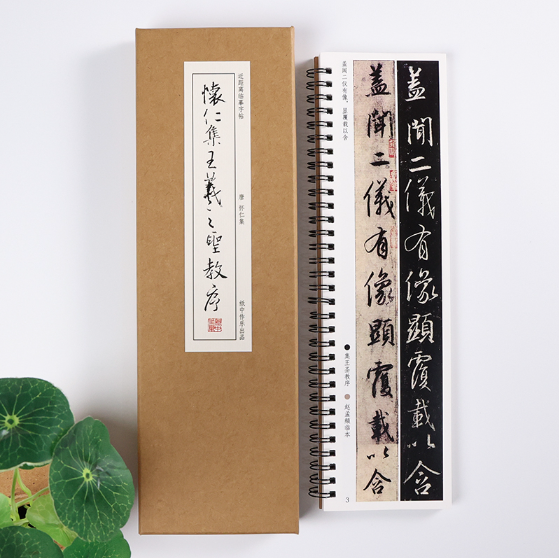 近距离临摹字帖
懷仁集王羲之聖教序
唐 怀仁集
板中作乐出品
盖闻二仪有像，显覆载以含
盖聞二儀有像顯覆載以含
盖聞二儀有像顯覆載以含
集王圣教序
赵孟頫临本
3